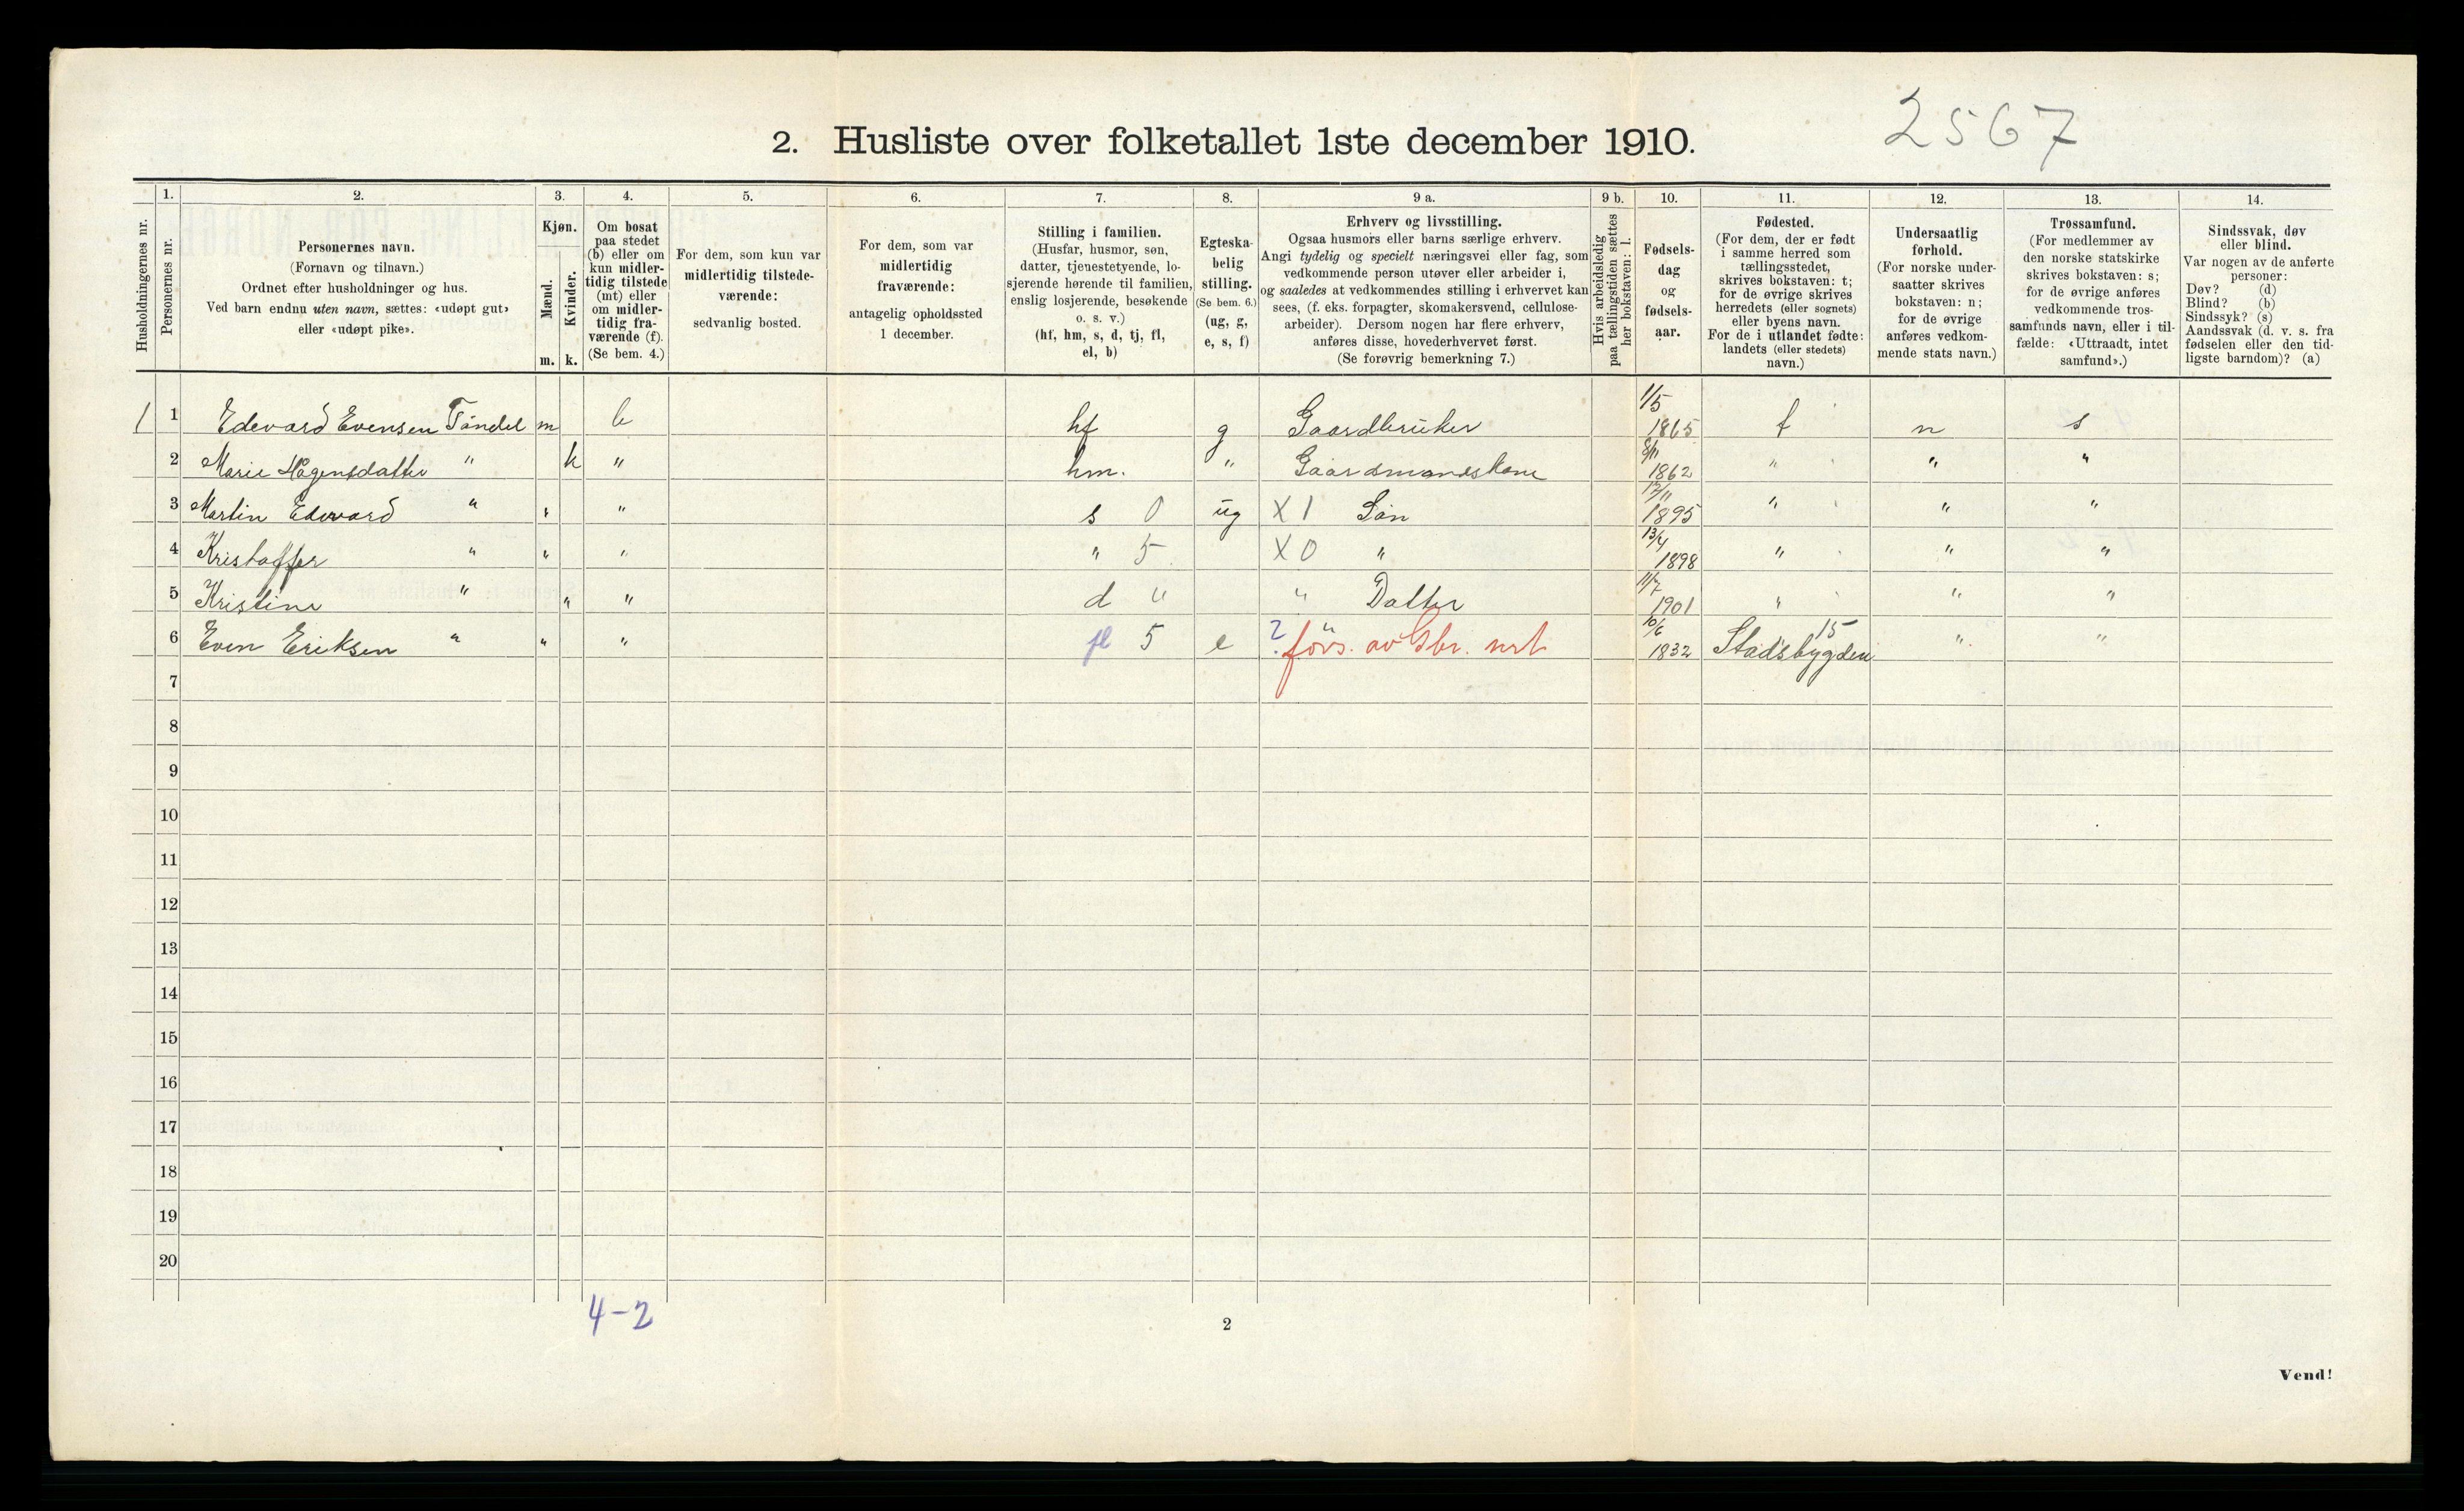 2567
2. Husliste over folketallet 1ste december 1910.
Husholdningernes nr.
1.
Personernes nr.
2.
Personernes navn.
(Fornavn og tilnavn.)
Ordnet efter husholdninger og hus.
Ved barn endnu uten navn, sættes: «udøpt gut»
eller «udøpt pike».
3.
Kjøn.
Mænd.
m.
Kvinder.
k.
4.
Om bosat
paa stedet
(b) eller om
kun midler-
tidig tilstede
(mt) eller
om midler-
tidig fra-
værende (f).
(Se bem. 4.)
5.
For dem, som kun var
midlertidig tilstede-
værende:
sedvanlig bosted.
6.
For dem, som var
midlertidig
fraværende:
antagelig opholdssted
1 december.
7.
Stilling i familien.
(Husfar, husmor, søn,
datter, tjenestetyende, lo-
sjerende hørende til familien,
enslig losjerende, besøkende
o. s. v.)
(hf, hm, s, d, tj, fl,
el, b)
8.
Egteska-
belig
stilling.
(Se bem. 6.)
(ug, g,
e, s, f)
9 a.
Erhverv og livsstilling.
Ogsaa husmors eller barns særlige erhverv.
Angi tydelig og specielt næringsvei eller fag, som
vedkommende person utøver eller arbeider i,
og saaledes at vedkommendes stilling i erhvervet kan
sees, (f. eks. forpagter, skomakersvend, cellulose-
arbeider). Dersom nogen har flere erhverv,
anføres disse, hovederhvervet først.
(Se forøvrig bemerkning 7.)
9 b.
Hvis arbeidsledig
paa tællingstiden sættes
her bokstaven: l.
10.
Fødsels-
dag
og
fødsels-
aar.
11.
Fødested.
(For dem, der er født
i samme herred som
tællingsstedet,
skrives bokstaven: t;
for de øvrige skrives
herredets (eller sognets)
eller byens navn.
For de i utlandet fødte:
landets (eller stedets)
navn.)
12.
Undersaatlig
forhold.
(For norske under-
saatter skrives
bokstaven: n;
for de øvrige
anføres vedkom-
mende stats navn.)
13.
Trossamfund.
(For medlemmer av
den norske statskirke
skrives bokstaven: s;
for de øvrige anføres
vedkommende tros-
samfunds navn, eller i til-
fælde: «Uttraadt, intet
samfund».)
14.
Sindssvak, døv
eller blind.
Var nogen av de anførte
personer:
Døv? (d)
Blind? (b)
Sindssyk? (s)
Aandssvak (d. v. s. fra
fødselen eller den tid-
ligste barndom)? (a)
1 1 Edevard Evensen Tøndel m b hf g Gaardbruker 1/5 1865 t n s
2 Marie Hågensdatter " k " hm. " Gaardmandskone 8/11 1862 " " "
3 Martin Edevard " " " s 0 ug X 1 Søn 17/11 1895 " " "
4 Kristoffer " " " " 5 X 0 " 13/4 1898 " " "
5 Kristine " " " d " " Datter 11/7 1901 " " "
6 Even Eriksen " " " fl 5 e ? " førs. av Gbr. mrk 10/6 1832 Stadsbygden 15 " "
7
8
9
10
11
12
13
14
15
16
17
18
19
20
4-2
2
Vend!